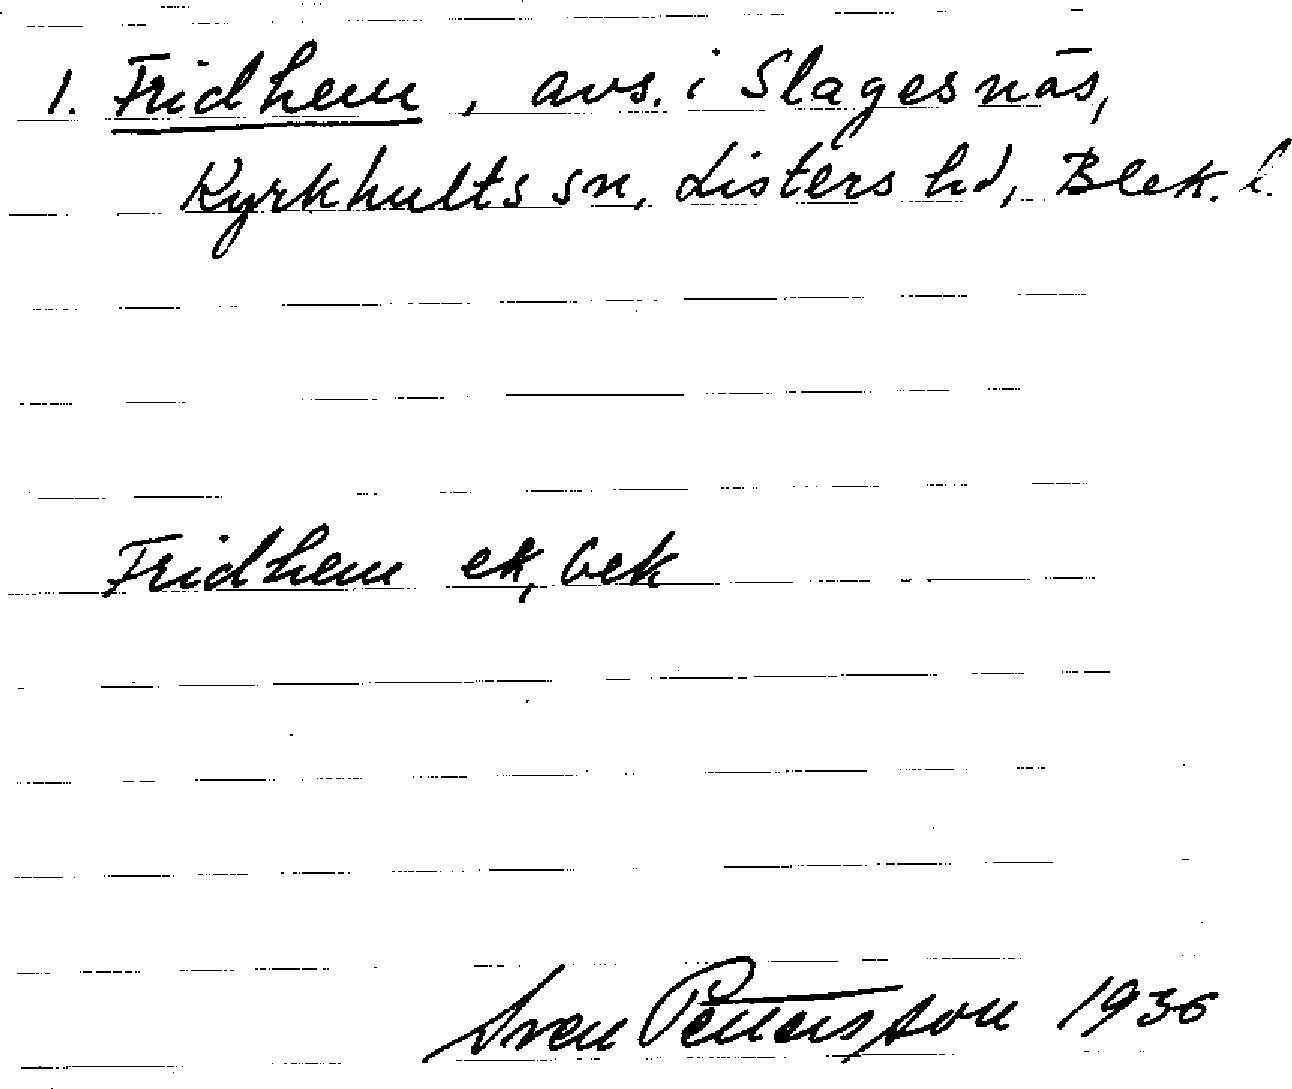 1. Fridhem, avs. i Slagesnäs,
Kyrkhults sn, Listers hd, Blek. l.
Fridhem ek, bek
Sven Pettersson 1936